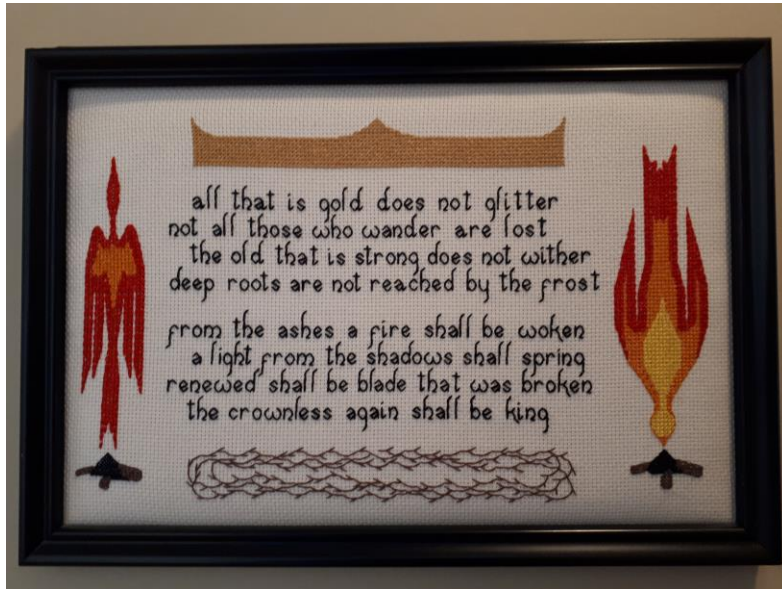 all that is gold does not glitter
not all those who wander are lost
the old that is strong does not wither
deep roots are not reached by the frost
from the ashes a fire shall be woken
a light from the shadows shall spring
renewed shall be blade that was broken
the crownless again shall be king